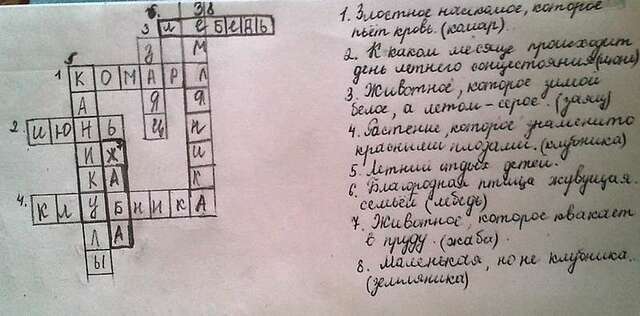 6 3 8
3 л е б е д ь
з м
5
1 К О М А Р Л
А Я Я
2. И Ю Н Ь Ц Н
И Ж И
К А К
4. К Л У Б Н И К А
Л А
Ы
1. Злостное насекомое, которое
пьёт кровь. (комар).
2. В каком месяце происходит
день летнего солнцестояния (июнь)
3. Животное, которое зимой
белое, а летом - серое. (заяц)
4. Растение, которое знаменито
красными плодами. (клубника)
5. Летний отдых детей.
6. Благородная птица живущая
семьёй (лебедь)
7. Животное, которое квакает
в пруду. (жаба).
8. Маленькая, но не клубника..
(земляника)